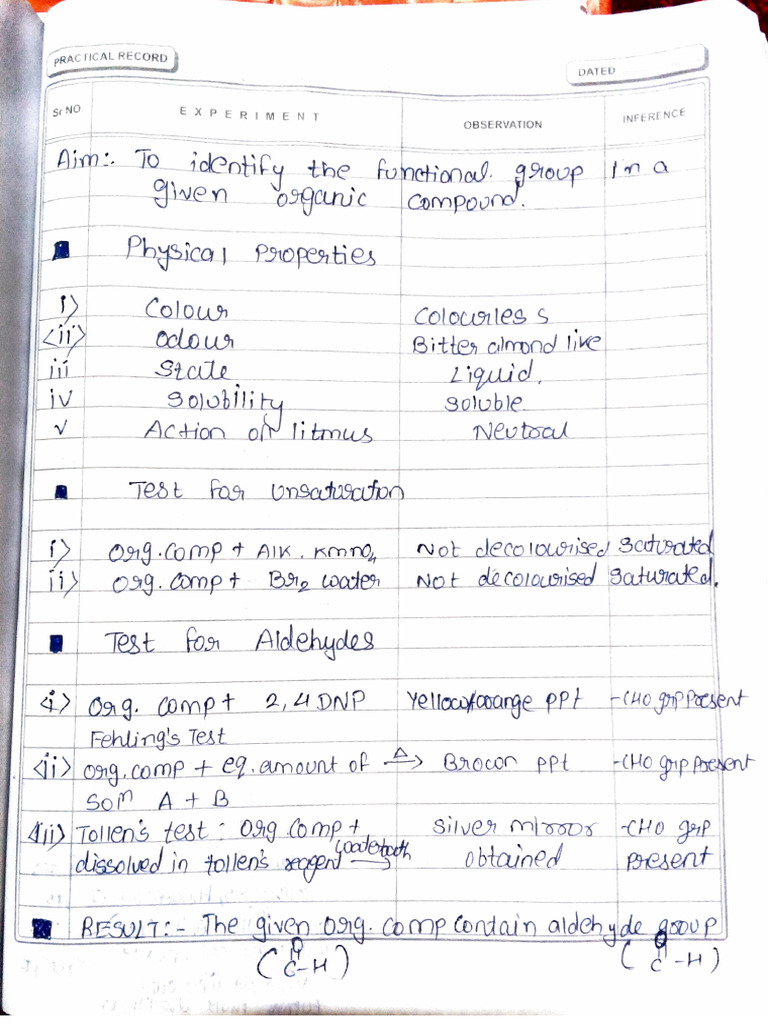 PRACTICAL RECORD
DATED
Sr NO EXPERIMENT OBSERVATION INFERENCE
Aim:- To identify the functional group in a
given organic compound.
Physical Properties
i) Colour Colourless
<ii) odour Bitter almond like
iii State Liquid.
iv Solubility Soluble
v Action on litmus Neutral
Test for Unsaturation
i) Org. comp + Alk. KMnO4 Not decolourised Saturated
ii) Org. comp + Br2 water Not decolourised Saturated.
Test for Aldehydes
<i> Org. comp + 2,4 DNP Yellow/orange ppt -CHO grp Present
Fehling's Test
<ii) Org. comp + eq. amount of Δ → Brown ppt -CHO grp Present
Soln A + B
<iii) Tollen's test: Org. comp + Silver mirror -CHO grp
dissolved in tollen's reagent waterbath → obtained Present
RESULT:- The given org. comp contain aldehyde group
(O C-H) (O C-H)